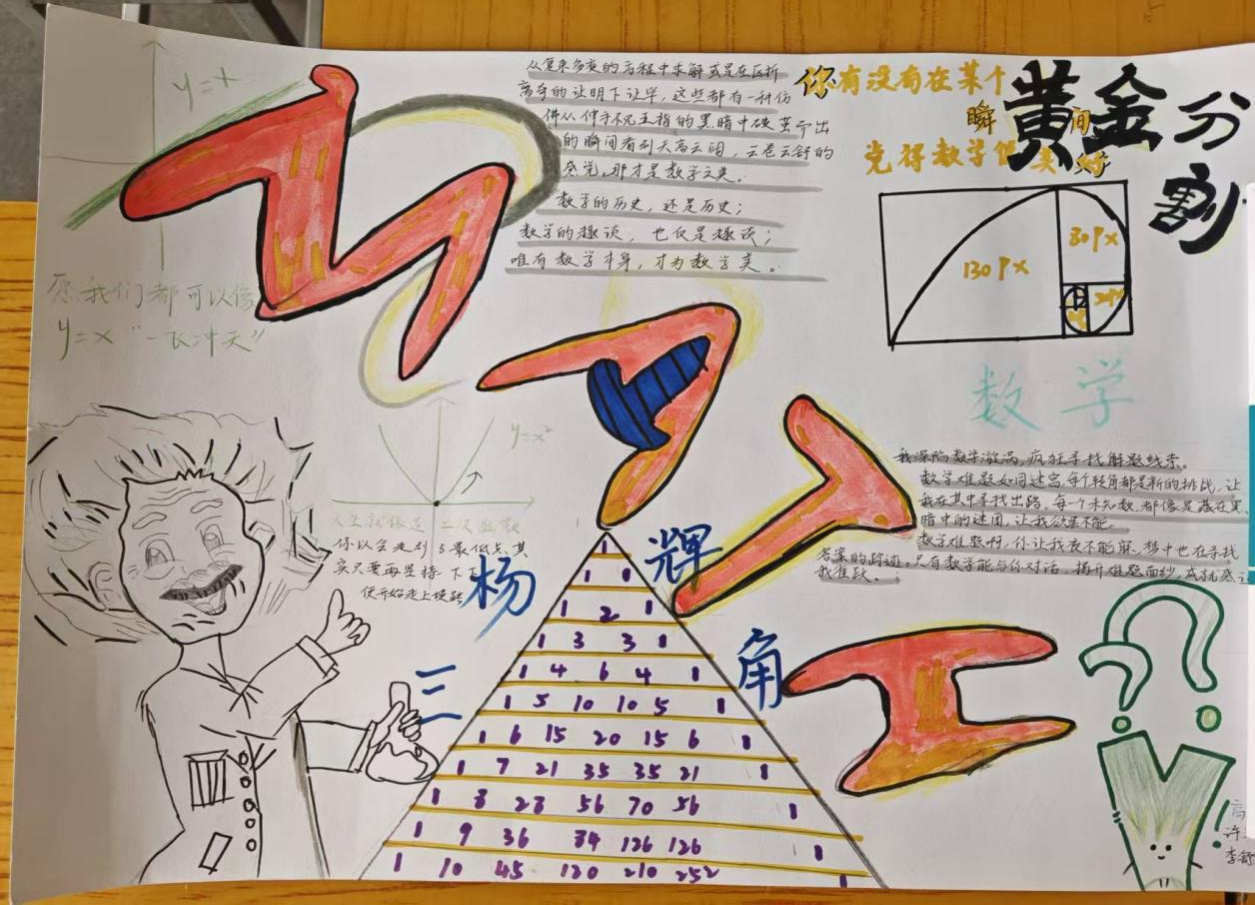 y=x
愿我们都可以像
y=x "一飞冲天"
从复杂多变的方程中求解或是在曲折
离奇的证明下证毕，这些都有一种仿
佛从伸手不见五指的黑暗中破茧而出
的瞬间看到天高云阔，云卷云舒的
感觉。那才是数学之美。
数学的历史，还是历史；
数学的趣谈，也仅是趣谈；
唯有数学本身，才为数学美。
你有没有在某个
瞬间
觉得数学很美妙
黄金分
割
130px
80px
MATH
数学
我深陷数学漩涡，疯狂寻找解题线索。
数学难题如同迷宫，每个转角都是新的挑战，让
我在其中寻找出路，每一个未知数，都像是藏在黑
暗中的谜团，让我欲罢不能。
数学难题啊，你让我夜不能寐，梦中也在寻找
答案的踪迹。只有数学能与你对话，揭开难题面纱，成就感让
我雀跃。
y=x²
人生就像是二次函数
你以会走到了最低点，其
实只要再坚持一下
便开始走上坡路
杨辉
三角
1
1 1
1 2 1
1 3 3 1
1 4 6 4 1
1 5 10 10 5 1
1 6 15 20 15 6 1
1 7 21 35 35 21 1
1 8 28 56 70 56 1
1 9 36 84 126 126 1
1 10 45 120 210 252 1
?
!
高
许
李舒